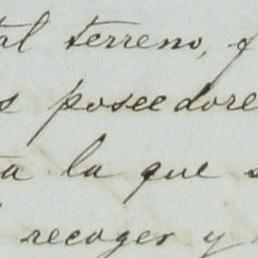 tal terreno, y
s poseedore
ta la que s
recoger y